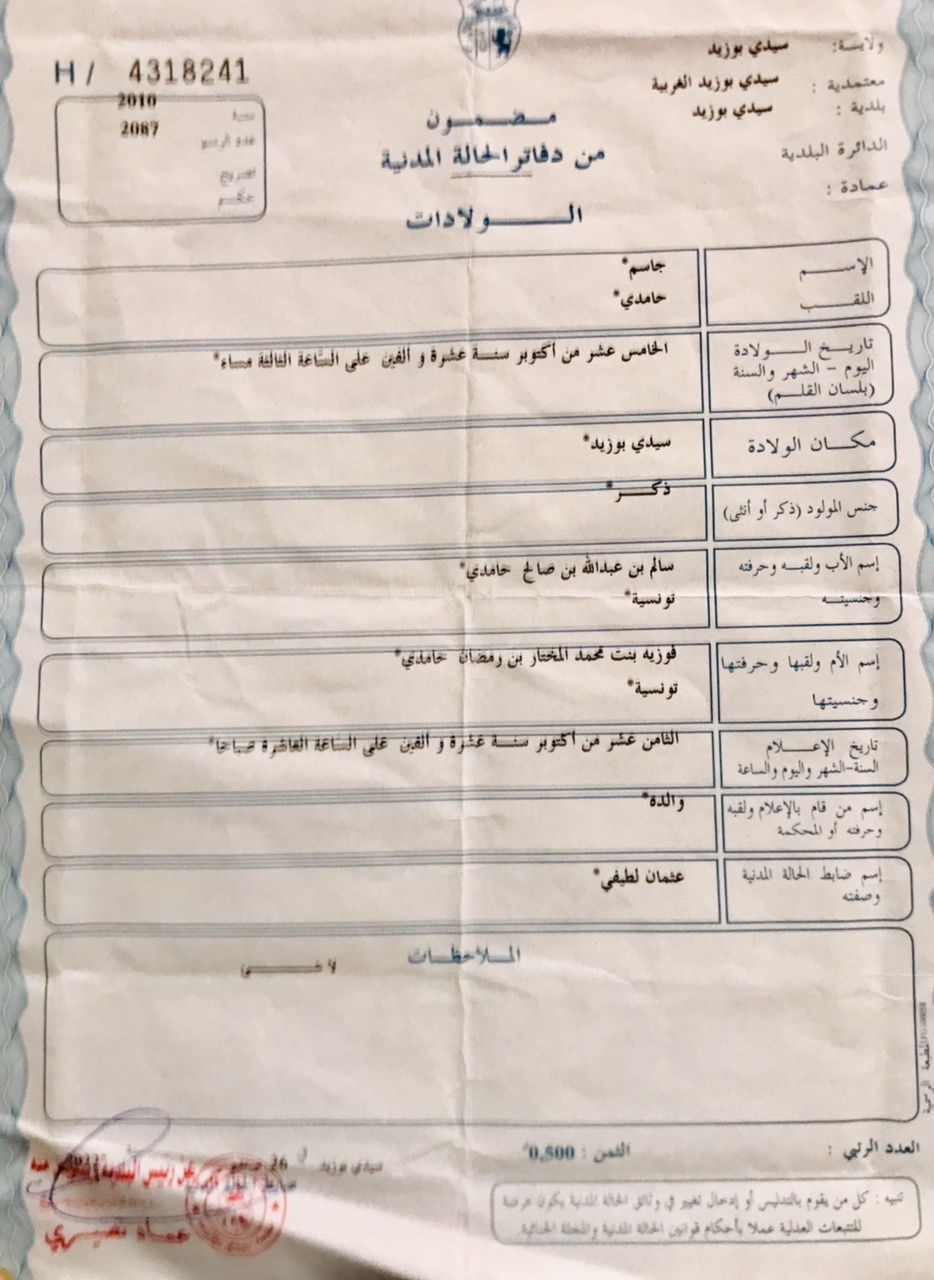 ولايـة: سيدي بوزيد
معتمدية : سيدي بوزيد الغربية
بلدية : سيدي بوزيد
الدائرة البلدية
عمادة :
H / 4318241
سنة 2010
عدد الرسم 2087
تصريح
حكم
مـضـمـون
من دفاتر الحالة المدنية
الـولادات
الإسـم جاسم*
اللقـب حامدي*
تاريـخ الـولادة الخامس عشر من أكتوبر سنـة عشرة و ألفين على السّاعة الثالثة مساء*
اليوم - الشهر والسنة
(بلسان القلـم)
مكـان الولادة سيدي بوزيد*
جنس المولود (ذكر أو أنثى) ذكـر*
إسم الأب ولقبـه وحرفته سالم بن عبدالله بن صالح حامدي*
وجنسيتـه تونسية*
إسم الأم ولقبها وحرفتها فوزيه بنت محمد المختار بن رمضان حامدي*
وجنسيتها تونسية*
تاريخ الإعـلام الثامن عشر من أكتوبر سنـة عشرة و ألفين على الساعة العاشرة صباحا*
السنة-الشهر واليوم والساعة
إسم من قام بالإعلام ولقبه والده*
وحرفته أو المحكمة
إسم ضابط الحالة المدنية عثمان لطيفي*
وصفته
الملاحظـات
لا شـي
العدد الرتبي :
الثمن : 0,500
سيدي بوزيد في 26
تنبيه : كل من يقوم بالتدليس أو إدخال تغيير في وثائق الحالة المدنية يكون عرضة
للتتبعات العدلية عملا بأحكام قوانين الحالة المدنية والمجلة الجنائية
المطبعة الرسمية